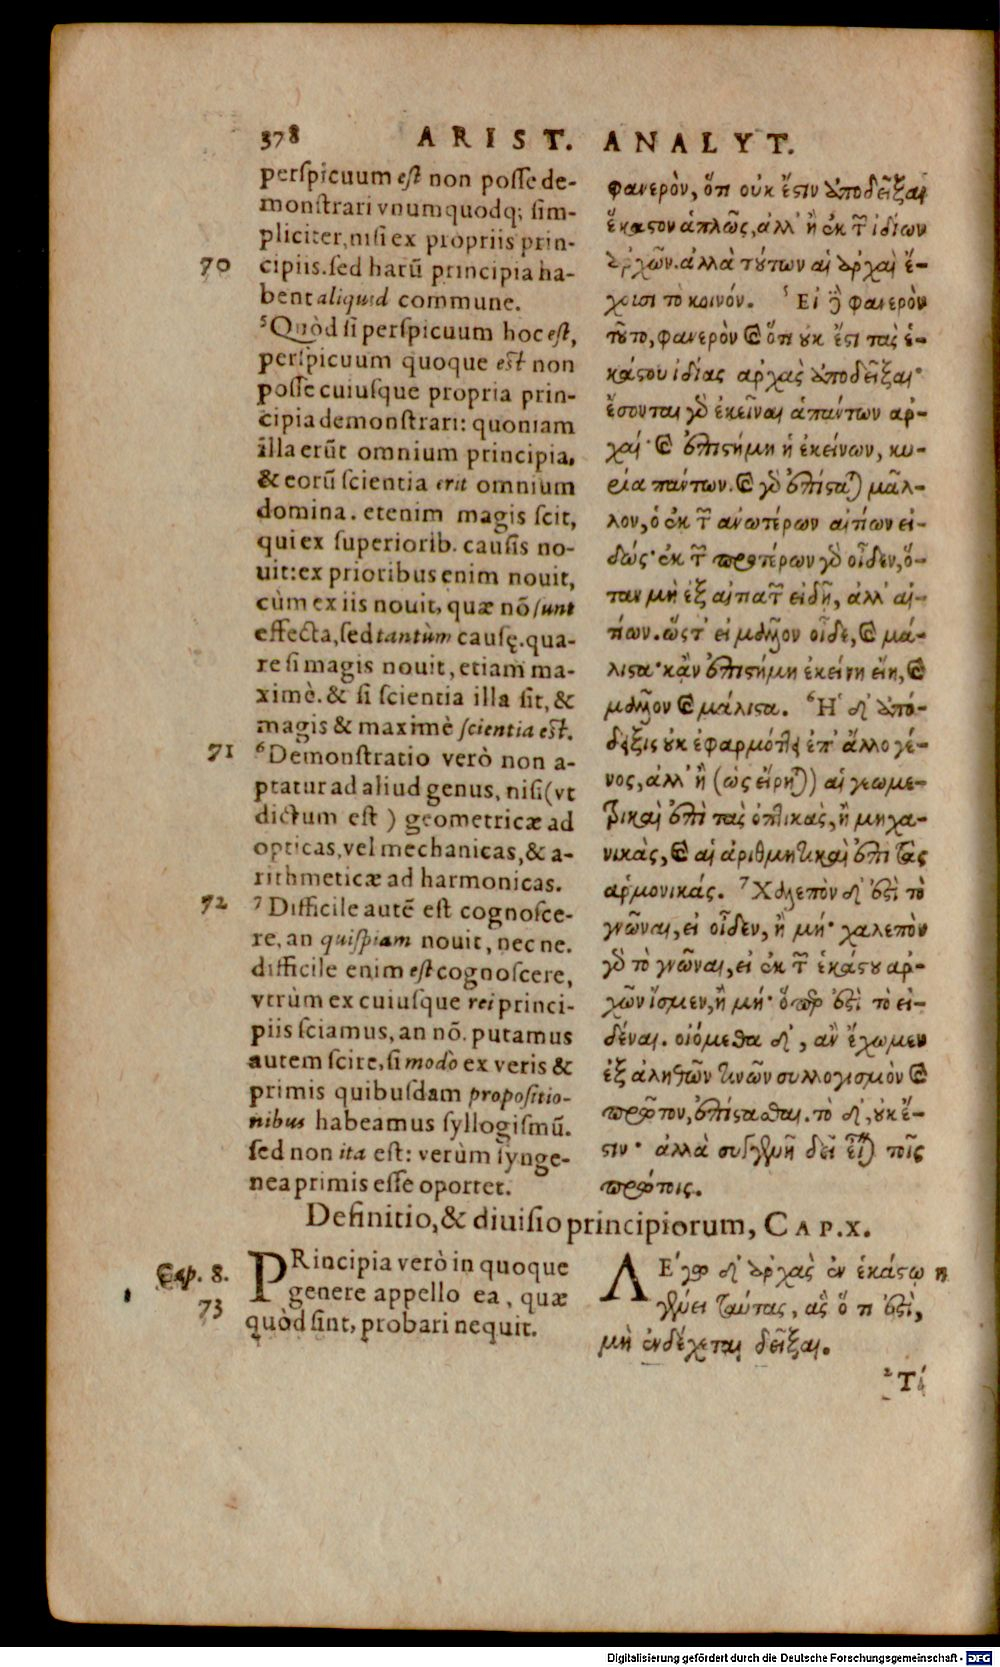 378 ARIST. ANALYT.
perſpicuum est non poſſe de-
monſtrari vnumquodq; ſim-
pliciter, niſi ex propriis prin-
70 cipiis. ſed harū principia ha-
bent aliquid commune.
5 Quòd ſi perſpicuum hoc est,
perſpicuum quoque est non
poſſe cuiuſque propria prin-
cipia demonſtrari: quoniam
illa erūt omnium principia,
& eorū ſcientia erit omnium
domina. etenim magis ſcit,
qui ex ſuperiorib. cauſis no-
uit: ex prioribus enim nouit,
cùm ex iis nouit, quæ nō ſunt
effecta, ſed tantùm cauſę. qua-
re ſi magis nouit, etiam ma-
ximè. & ſi ſcientia illa ſit, &
magis & maximè ſcientia est.
71 6 Demonſtratio verò non a-
ptatur ad aliud genus, niſi (vt
dictum eſt) geometricæ ad
opticas, vel mechanicas, & a-
rithmeticæ ad harmonicas.
72 7 Difficile autē eſt cognoſce-
re, an quiſpiam nouit, nec ne.
difficile enim est cognoſcere,
vtrùm ex cuiuſque rei princi-
piis ſciamus, an nō. putamus
autem ſcire, ſi modo ex veris &
primis quibuſdam propoſitio-
nibus habeamus ſyllogiſmū.
ſed non ita eſt: verùm ſynge-
nea primis eſſe oportet.
φανερὸν, ὅτι οὐκ ἔστιν ἀποδεῖξαι
ἕκαστον ἁπλῶς, ἀλλ' ἢ ἐκ τῶν ἰδίων
ἀρχῶν. ἀλλὰ τούτων αἱ ἀρχαὶ ἔ-
χουσι τὸ κοινόν. 5 Εἰ δὲ φανερὸν
τοῦτο, φανερὸν καὶ ὅτι οὐκ ἔστι τὰς ἑ-
κάστου ἰδίας ἀρχὰς ἀποδεῖξαι·
ἔσονται γὰρ ἐκεῖναι ἁπάντων ἀρ-
χαί· καὶ ἐπιστήμη ἡ ἐκείνων, κυ-
ρία πάντων. καὶ γὰρ ἐπίσταται μᾶλ-
λον, ὁ ἐκ τῶν ἀνωτέρων αἰτίων εἰ-
δώς· ἐκ τῶν προτέρων γὰρ οἶδεν, ὅ-
ταν μὴ ἐξ αἰτιατῶν εἰδῇ, ἀλλ' αἰ-
τίων. ὥστ' εἰ μᾶλλον οἶδε, καὶ μά-
λιστα· κἂν ἐπιστήμη ἐκείνη εἴη, καὶ
μᾶλλον καὶ μάλιστα. 6 Ἡ δ' ἀπό-
δειξις οὐκ ἐφαρμόττει ἐπ' ἄλλο γέ-
νος, ἀλλ' ἢ (ὡς εἴρηται) αἱ γεωμε-
τρικαὶ ἐπὶ τὰς ὀπτικὰς, ἢ μηχα-
νικὰς, καὶ αἱ ἀριθμητικαὶ ἐπὶ τὰς
ἁρμονικάς. 7 Χαλεπὸν δ' ἐστὶ τὸ
γνῶναι, εἰ οἶδεν, ἢ μή· χαλεπὸν
γὰρ τὸ γνῶναι, εἰ ἐκ τῶν ἑκάστου ἀρ-
χῶν ἴσμεν, ἢ μή· ὅπερ ἐστὶ τὸ εἰ-
δέναι. οἰόμεθα δ', ἂν ἔχωμεν
ἐξ ἀληθῶν τινῶν συλλογισμὸν καὶ
πρώτων, ἐπίστασθαι. τὸ δ', οὐκ ἔ-
στιν· ἀλλὰ συγγενῆ δεῖ εἶναι τοῖς
πρώτοις.
Definitio, & diuiſio principiorum, CAP. X.
Cap. 8. PRincipia verò in quoque
73 genere appello ea, quæ
quòd ſint, probari nequit.
ΛΕγω δ' ἀρχὰς ἐν ἑκάστῳ
γένει ταύτας, ἃς ὅτι ἐστὶ,
μὴ ἐνδέχεται δεῖξαι.
2 Τί
Digitalisierung gefördert durch die Deutsche Forschungsgemeinschaft - DFG